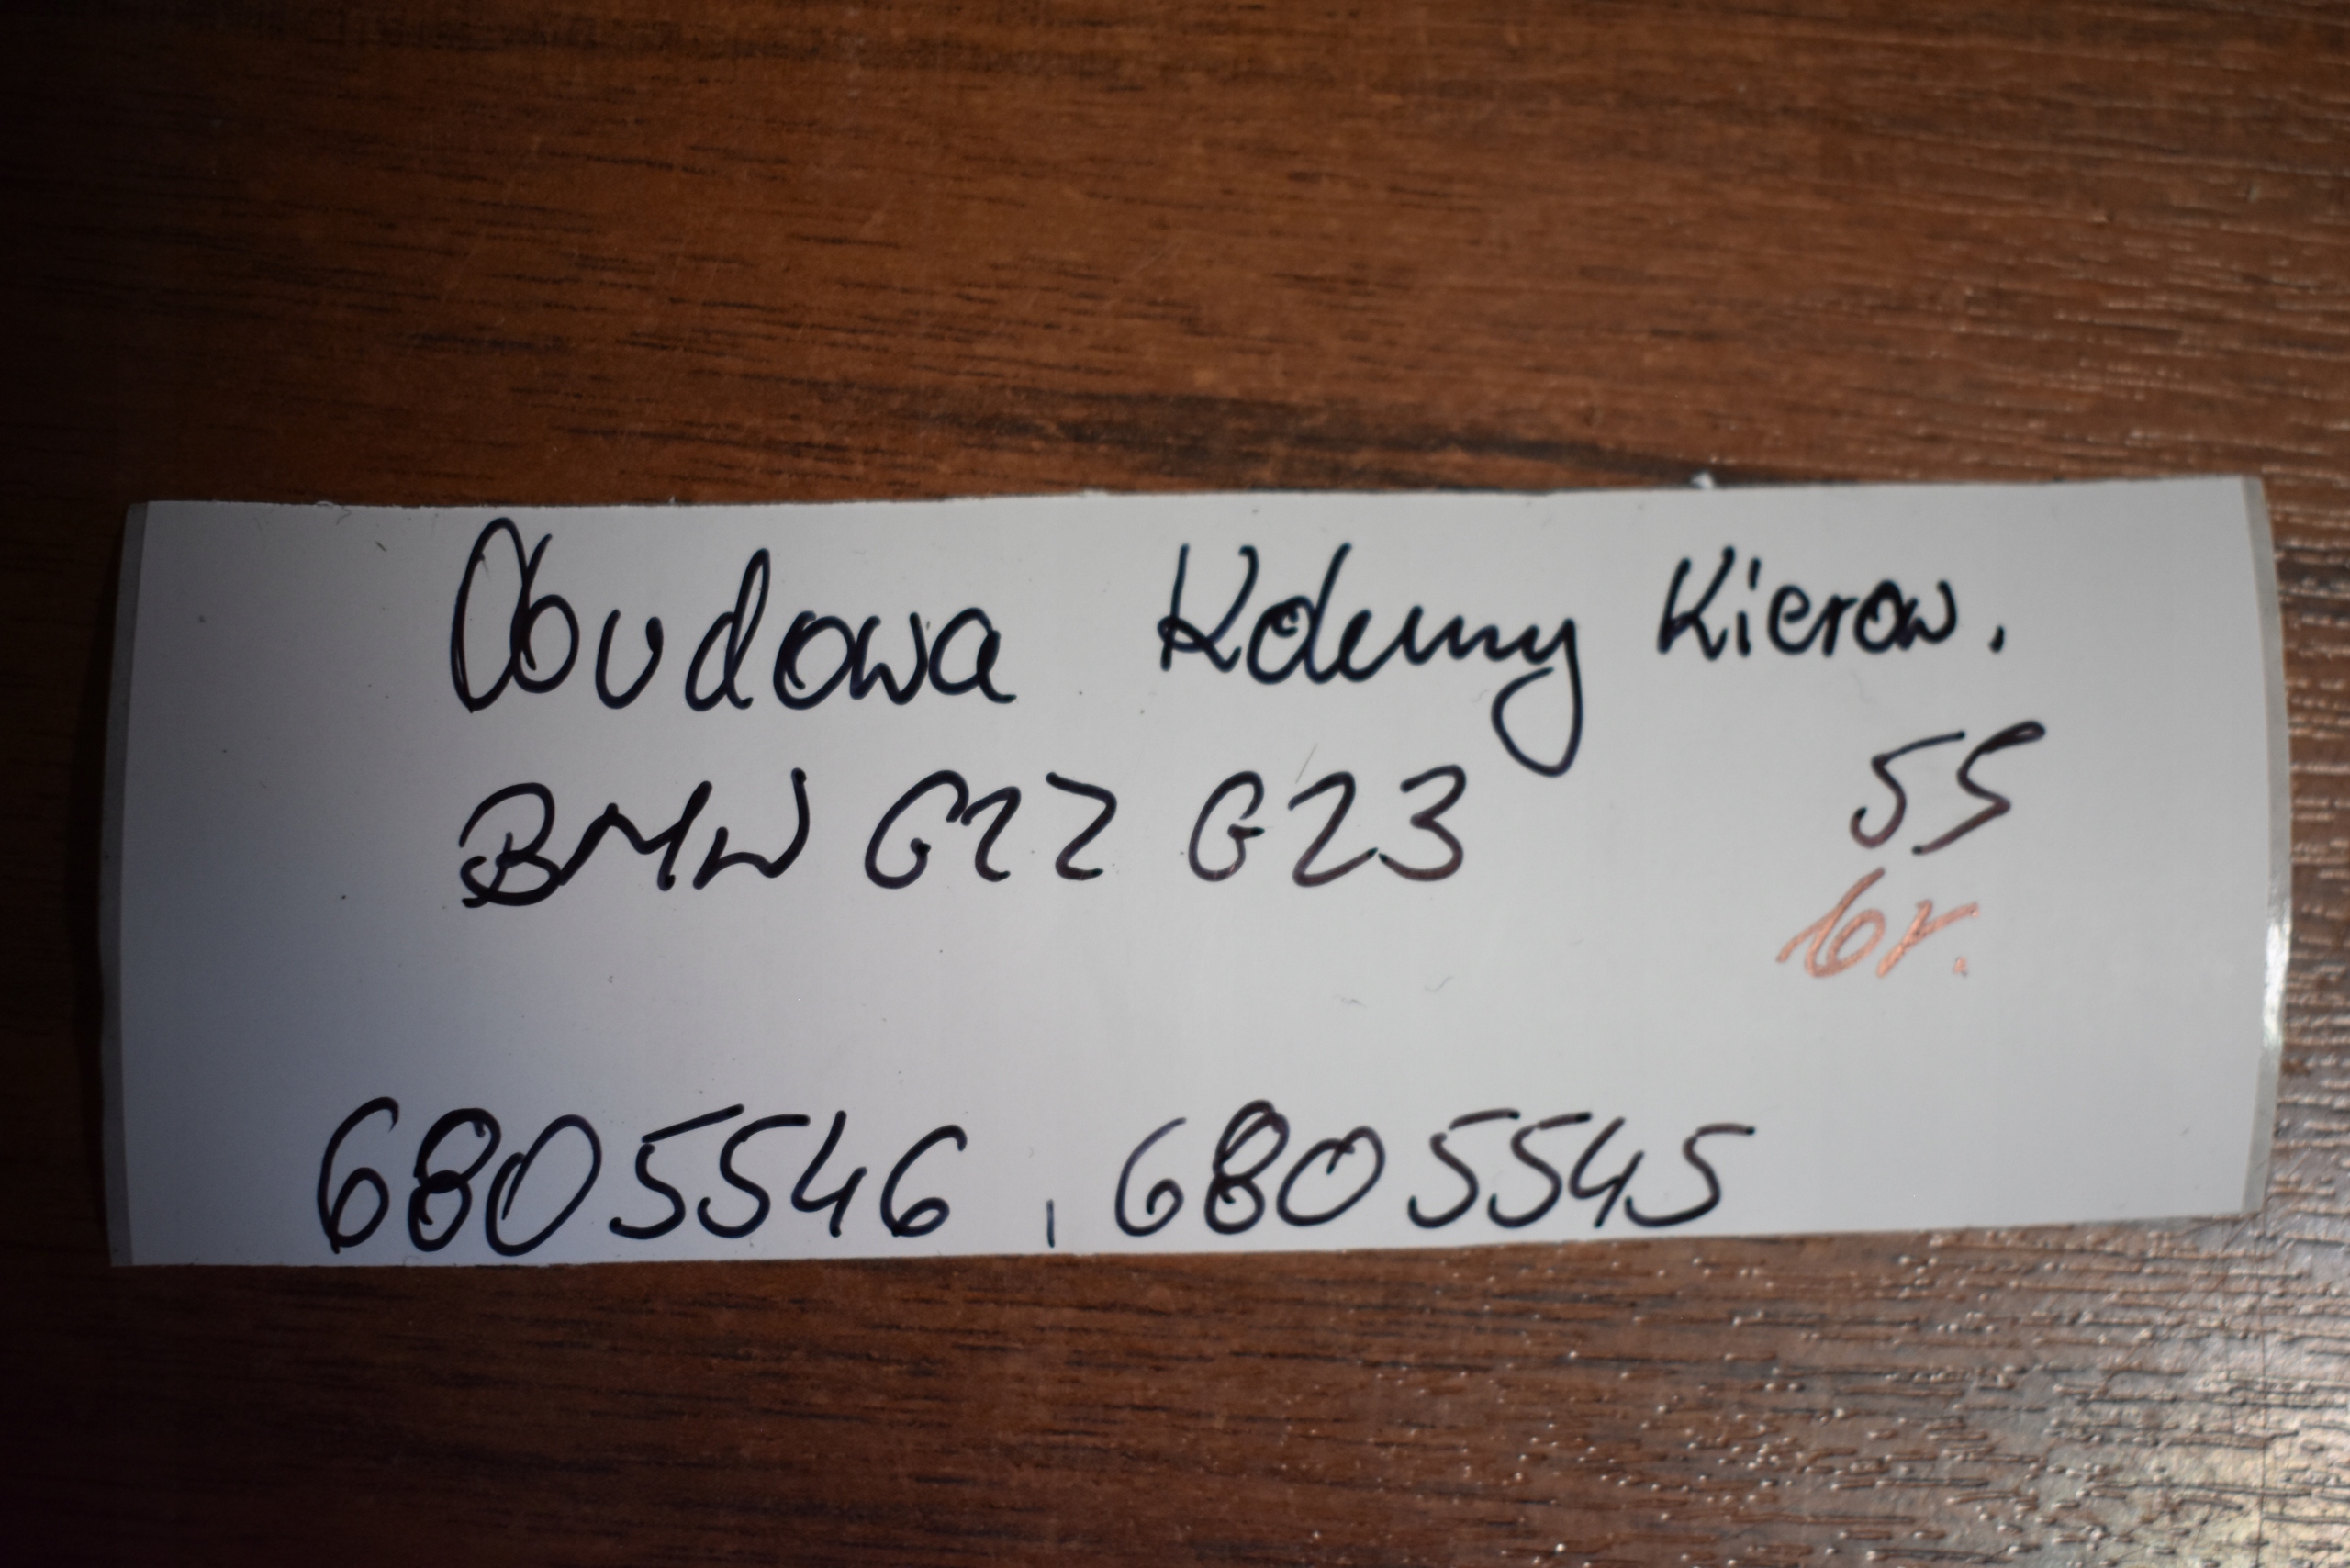 Obudowa Kolumny Kierow.
BMW G22 G23 55
br.
6805546, 6805545